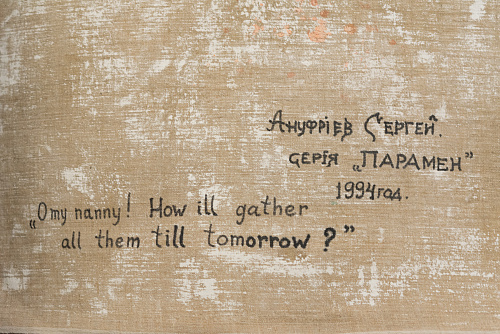 Ануфріев Сергей.
серія „ПАРАМЕН”
1994 год.
„O my nanny! How ill gather
all them till tomorrow?”